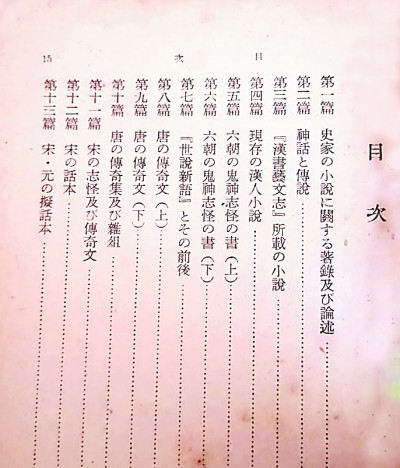 目次
第一篇 史家の小說に關する著錄及び論述
第二篇 神話と傳說
第三篇 『漢書藝文志』所載の小說
第四篇 現存の漢人小說
第五篇 六朝の鬼神志怪の書(上)
第六篇 六朝の鬼神志怪の書(下)
第七篇 『世說新語』とその前後
第八篇 唐の傳奇文(上)
第九篇 唐の傳奇文(下)
第十篇 唐の傳奇集及び雜俎
第十一篇 宋の志怪及び傳奇文
第十二篇 宋の話本
第十三篇 宋・元の擬話本
目次 15